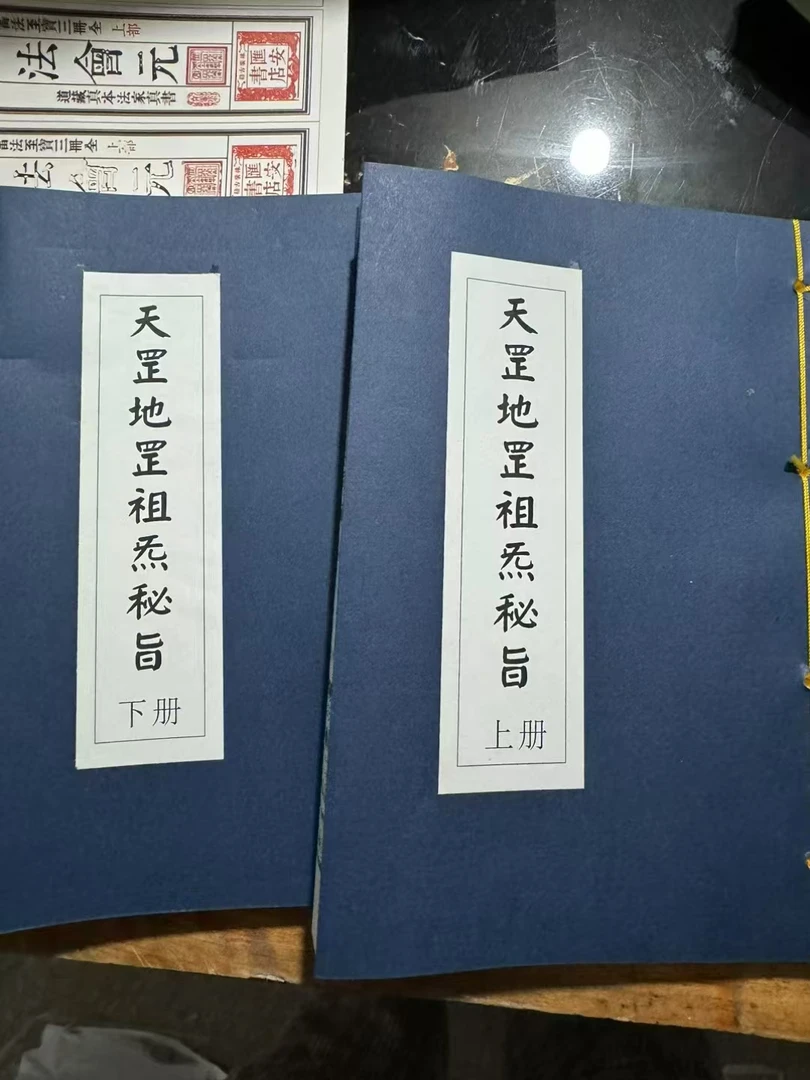 法至寶三冊全 上部
法會元
道藏真本法家真書
匯安
書店
法至寶三冊全 上
會元
匯安
書店
天罡地罡祖炁秘旨
下册
天罡地罡祖炁秘旨
上册